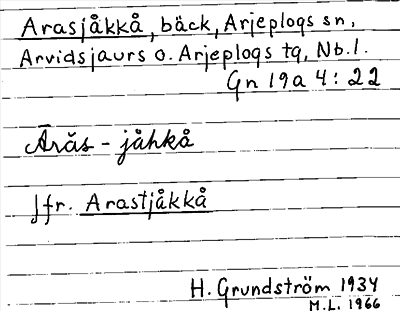 Arasjåkkå, bäck, Arjeplogs sn,
Arvidsjaurs o. Arjeplogs tg, Nb.l.
Gn 19a 4:22
Àrăs - jåhkå
jfr. Arastjåkkå
H. Grundström 1934
M.L. 1966